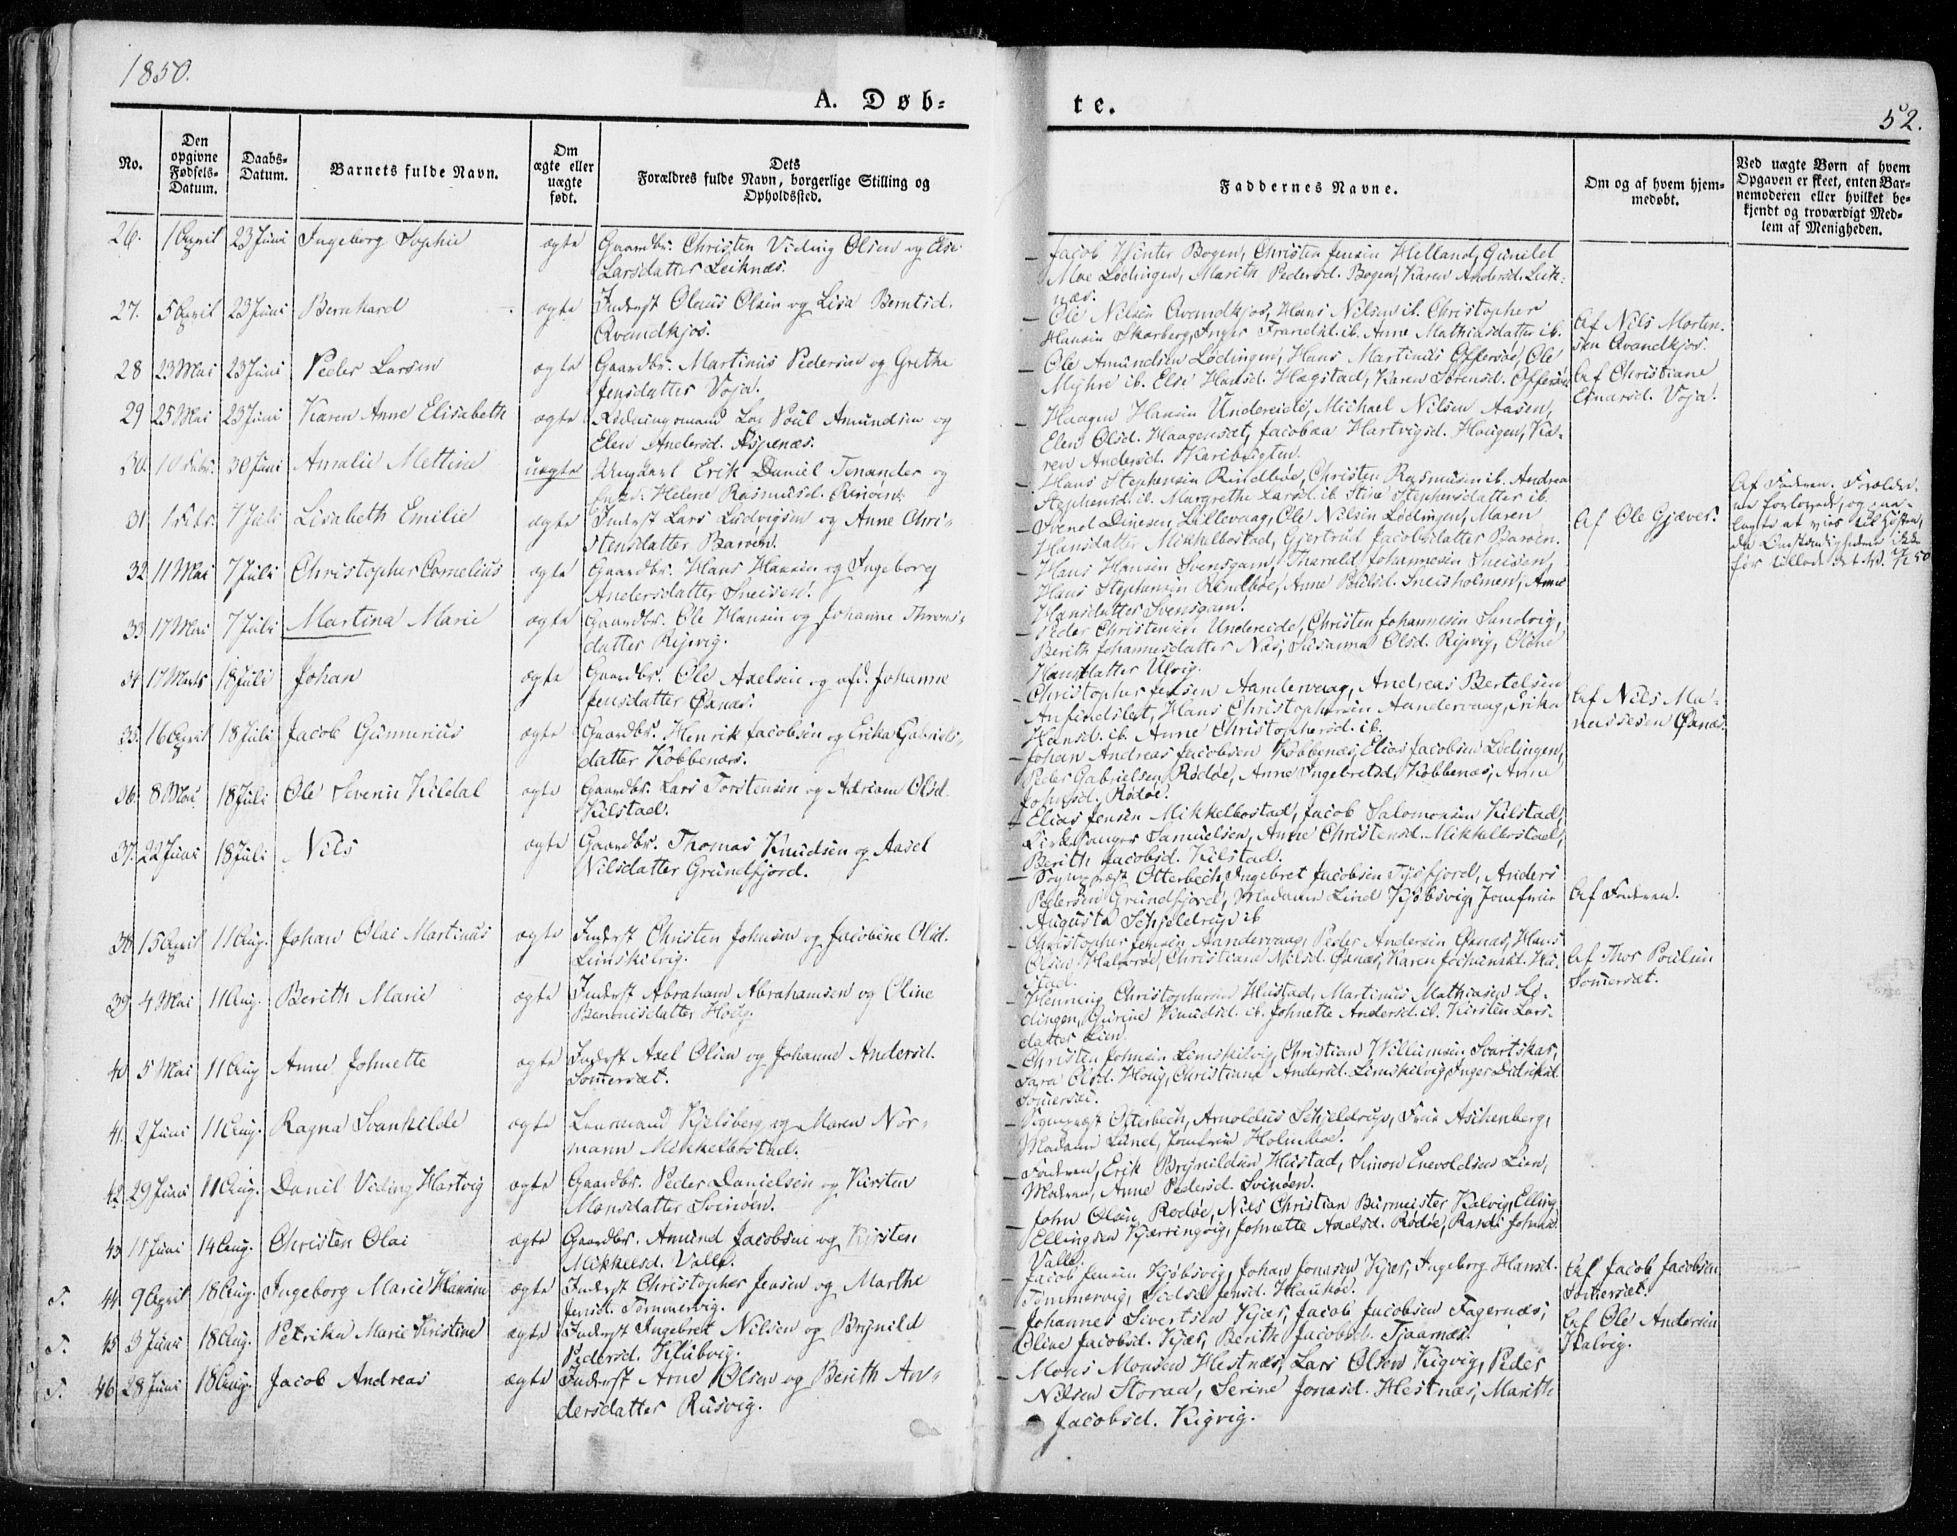 1850.
A. Døb-
te.
52.
No.
Den opgivne Fødsels-Datum.
Daabs-Datum.
Barnets fulde Navn.
Om ægte eller uægte født.
Dets Forældres fulde Navn, borgerlige Stilling og Opholdssted.
Faddernes Navne.
Om og af hvem hjem-medøbt.
Ved uægte Børn af hvem Opgaven er skeet, enten Bar-nemoderen eller hvilket be-kjendt og troværdigt Med-lem af Menigheden.
26. 1 April 23 Juni Ingeborg Sophie ægte Gaardbr. Christen Viding Olsen og Else
Larsdatter Leiknæs.
Jacob Winter Bogen, Christen Jensen Helland, Gunild
Moe Lødingen, Marith Pedersd. Bogen, Karen Andersd. Leik-
næs.
27. 5 April 23 Juni Bernhard ægte Inderst Olaus Olsen og Lisa Berntsd.
Qvandkjos.
Ole Nilsen Qvandkjos, Hans Nilsen ib. Christopher
Hansen Skarberg, Inger Frandsd. ib. Anne Mathiasdatter ib.
Af Nils Morten-
sen Qvandkjos.
28 23 Mai 23 Juni Peder Larsen ægte Gaardbr. Martinus Pedersen og Grethe
Jensdatter Voja.
Ole Amundsen Lødingen, Hans Martinus Offersøe, Ole
Mejhre ib. Else Hansd. Hægstad, Karen Sørensd. Offersøe
Af Christiane
Einarsd. Voja.
29 25 Mai 23 Juni Karen Anne Elisabeth ægte Rødningsmand Poul Amundsen og
Elen Andersd. Aspenæs.
Haagen Hansen Undereide, Michael Nilsen Aasen,
Elen Olsd. Haagenset, Jacobea Hartvigsd. Haugen, Ka-
ren Andersd. Kariberigten.
30. 10 30 Juni Amalie Mettine uægte Ungkarl Erik Daniel Tenander og
Helene Rasmusd. Rinøen.
Hans Stephensen Rindbøe, Christen Rasmusen ib. Andrea
Stephensd. ib. Margrethe Larsd. ib. Stine Stephensdatter ib.
Af Faderen. Forældre-
ne forlovede, og
at vies til Høsten,
da Omstændighederne ikke
før tillod det.
31. 1 Febr. 7 Juli Lisabeth Emilie ægte Inderst Lars Ludvigsen og Anne Chri-
stensdatter Barøen.
Svend Dinesen Lillevaag, Ole Nilsen Lødingen, Maren
Hansdatter Mikkelbostad, Gjertrud Jacobsdatter Barøen.
Af Ole Gjæver.
32 11 Mai 7 Juli Christopher Cornelius ægte Gaardbr. Hans Hansen og Ingeborg
Andersdatter Sneisen.
Hans Hansen Svensgam, Tharald Johannesen Sneisen,
Hans Stephensen Rindbøe, Anne Poulsd. Sneisholmen, Anne
Hansdatter Svensgam.
33 17 Mai 7 Juli Martina Marie ægte Gaardbr. Ole Hansen og Johanne Thomas-
datter Rejsvig.
Peder Christensen Undereide, Christen Johannesen Sandvig,
Berith Johannesdatter Næs, Susanna Olsd. Rejsvig, Olene
Hansdatter Ulvig.
34 17 Marts 18 Juli Johan ægte Gaardbr. Ole Axelsen og afd. Johanne
Jensdatter Øxnæs.
Christopher Jensen Aandervaag, Andreas Bertelsen
Anfindslet, Hans Christophersen Aandervaag, Erika
Hansd. ib. Anne Christophersd. ib.
Af Nils Ma-
nassesen Øxnæs.
35. 16 April 18 Juli Jacob Gunnerius ægte Gaardbr. Henrik Jacobsen og Erika Gabriels-
datter Kobbenæs.
Johan Andreas Jacobsen Kobbenæs, Elias Jacobsen Lødingen,
Peder Gabrielsen Rødøe, Anne Ingebretsd. Kobbenæs, Anne
Johnsd. Rødøe.
36. 8 Mai 18 Juli Ole Severin Kildal ægte Gaardbr. Lars Torstensen og Adriane Olsd.
Kilstad.
Elias Jensen Mikkelbostad, Jacob Salomonsen Kilstad,
Kirkesanger Samuelsen, Anne Christensd. Mikkelbostad,
Berith Jacobsd. Kilstad.
37. 22 Juni 18 Juli Nils ægte Gaardbr. Thomas Knudsen og Aasel
Nilsdatter Grundfjord.
Sognepræst Otterbech, Ingebret Jacobsen Tysfjord, Anders
Pedersen Grundfjord, Madame Lind Kjøbsvig, Jomfrue
Augusta Schjeldrup ib
Af Faderen.
38. 15 April 11 Aug. Johan Olai Martinus ægte Inderst Christen Johnsen og Jacobine Olsd.
Limskilvig.
Christopher Jensen Aandervaag, Peder Andersen Øxnæs, Hans
Olsen Halvarøe, Christiane Nilsd. Øxnæs, Karen Jochumsd. Hu-
stad.
Af Thor Poulsen
Somerset.
39 4 Mai 11 Aug. Berith Marie ægte Inderst Abraham Abrahamsen og Oline
Benonisdatter Houg.
Henning Christophersen Hustad, Martinus Mathiasen Lø-
dingen, Gurine Knudsd. ib. Johnette Andersd. ib. Kirsten Lars-
datter Lien.
40 5 Mai 11 Aug Anne Johnette ægte Inderst Axel Olsen og Johanne Andersd.
Somerset.
Christen Johnsen Limskilvig, Christian Willumsen Svartskar,
Sara Olsd. Houg, Christiane Andersd. Limskilvig, Inger Didriksd.
Somerset.
41. 2 Juni 11 Aug. Ragna Svanhilde ægte Lensmand Kjelsberg og Maren Nor-
mann Mikkelbostad.
Sognepræst Otterbech, Arnoldus Schjeldrup, Frue Aschenberg,
Madame Lund, Jomfrue Holmboe.
42. 29 Juni 11 Aug. Danil Viding Hartvig ægte Gaardbr. Peder Danielsen og Kirsten
Monsdatter Svinøen.
Faderen, Erik Brynildsen Hustad, Simon Enevoldsen Lien,
Moderen, Anne Pedersd. Svinøen.
43 11 Juni 14 Aug. Christen Olai ægte Gaardbr. Amund Jacobsen og Kirsten
Mikkelsd. Valle.
John Olsen Rødøe, Nils Christian Burmeister Kalvig, Elling
Ellingsen Kjærringvig, Johnette Axelsd. Rødøe, Randi Johnsd.
Valle.
T. 44. 9 April 18 Aug. Ingeborg Marie Hansine ægte Inderst Christopher Jensen og Marthe
Jensd. Tømmervig.
Jacob Jensen Kjøbsvig, Johan Jonasen Kjær, Ingeborg Hansd.
Tømmervig, Sidsel Jensd. Haukøe.
Af Jacob Jacobsen
Somerset.
T. 45 3 Juni 18 Aug. Petrikka Marie Kristine ægte Inderst Ingebret Nilsen og Brynild
Pedersd. Klubvig.
Johannes Sivertsen Kjær, Jacob Jacobsen Fagernæs,
Oline Jacobsd. Kjær, Berith Jacobsd. Tjaarnæs.
Af Ole Andersen
Kalvig.
T. 46 28 Juni 18 Aug. Jacob Andreas ægte Inderst Arne Olsen og Berith An-
dersdatter Rusvig.
Mons Monsen Hestnæs, Lars Olsen Kigvig, Peder
Nilsen Storaa, Serine Jonasd. Hestnæs, Marith
Jacobsd. Kigvig.